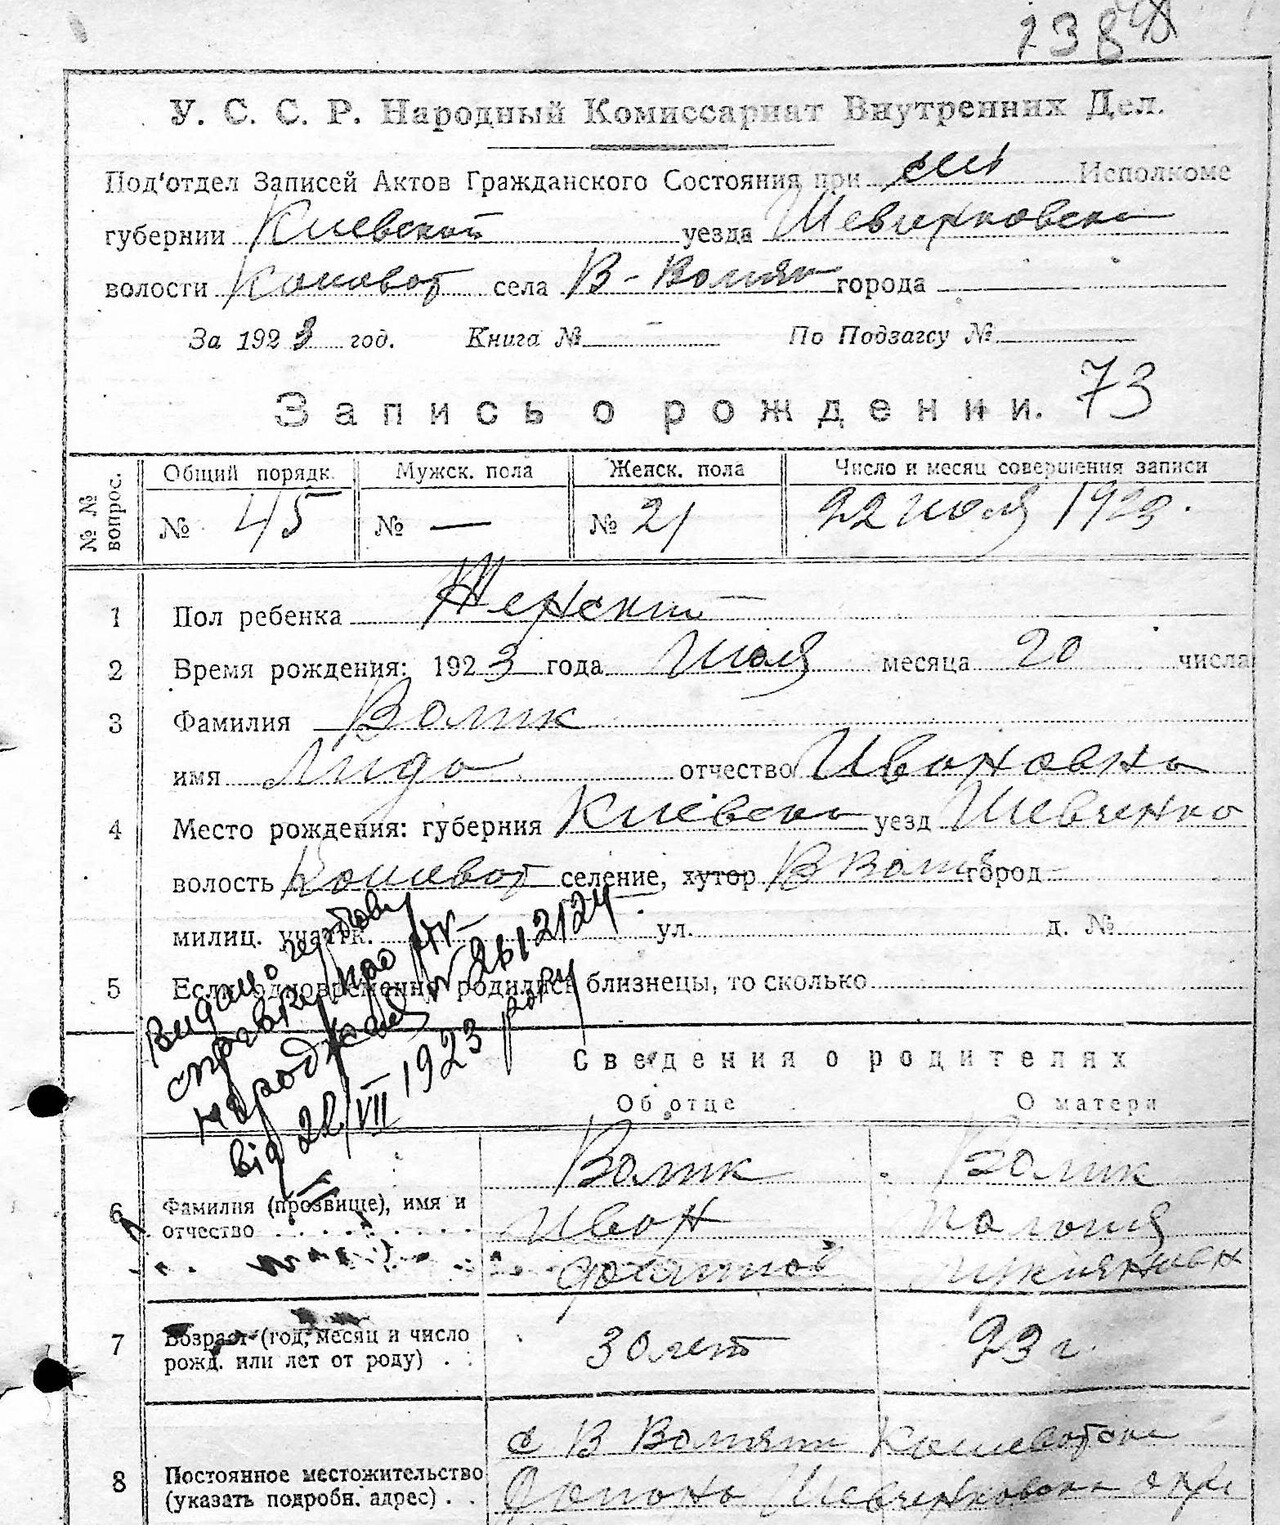 У. С. С. Р. Народный Комиссариат Внутренних Дел.
Под'отдел Записей Актов Гражданского Состояния при Исполкоме
губернии Киевской уезда Шевченковско
волости села города
За 1923 год. Книга № — По Подзагсу №
Запись о рождении. 73
№ № вопрос.
Общий порядк. Мужск. пола Женск. пола Число и месяц совершения записи
№ 45 № — № 21 22 июля 1923.
1 Пол ребенка Женский —
2 Время рождения: 1923 года Июля месяца 20 числа
3 Фамилия Волик
имя Лида отчество Ивановна
4 Место рождения: губерния Киевска уезд Шевченко
волость селение, хутор город —
милиц. участк. ул. д. №
5 Если одновременно родились близнецы, то сколько
Видано
справку про
народження №
від 22/VII 1923 року
Сведения о родителях
Об отце О матери
6 Фамилия (прозвище), имя и отчество
Волик Волик
Иван
7 Возраст (год, месяц и число рожд. или лет от роду)
30 лет 23 г.
8 Постоянное местожительство (указать подробн. адрес)
с В